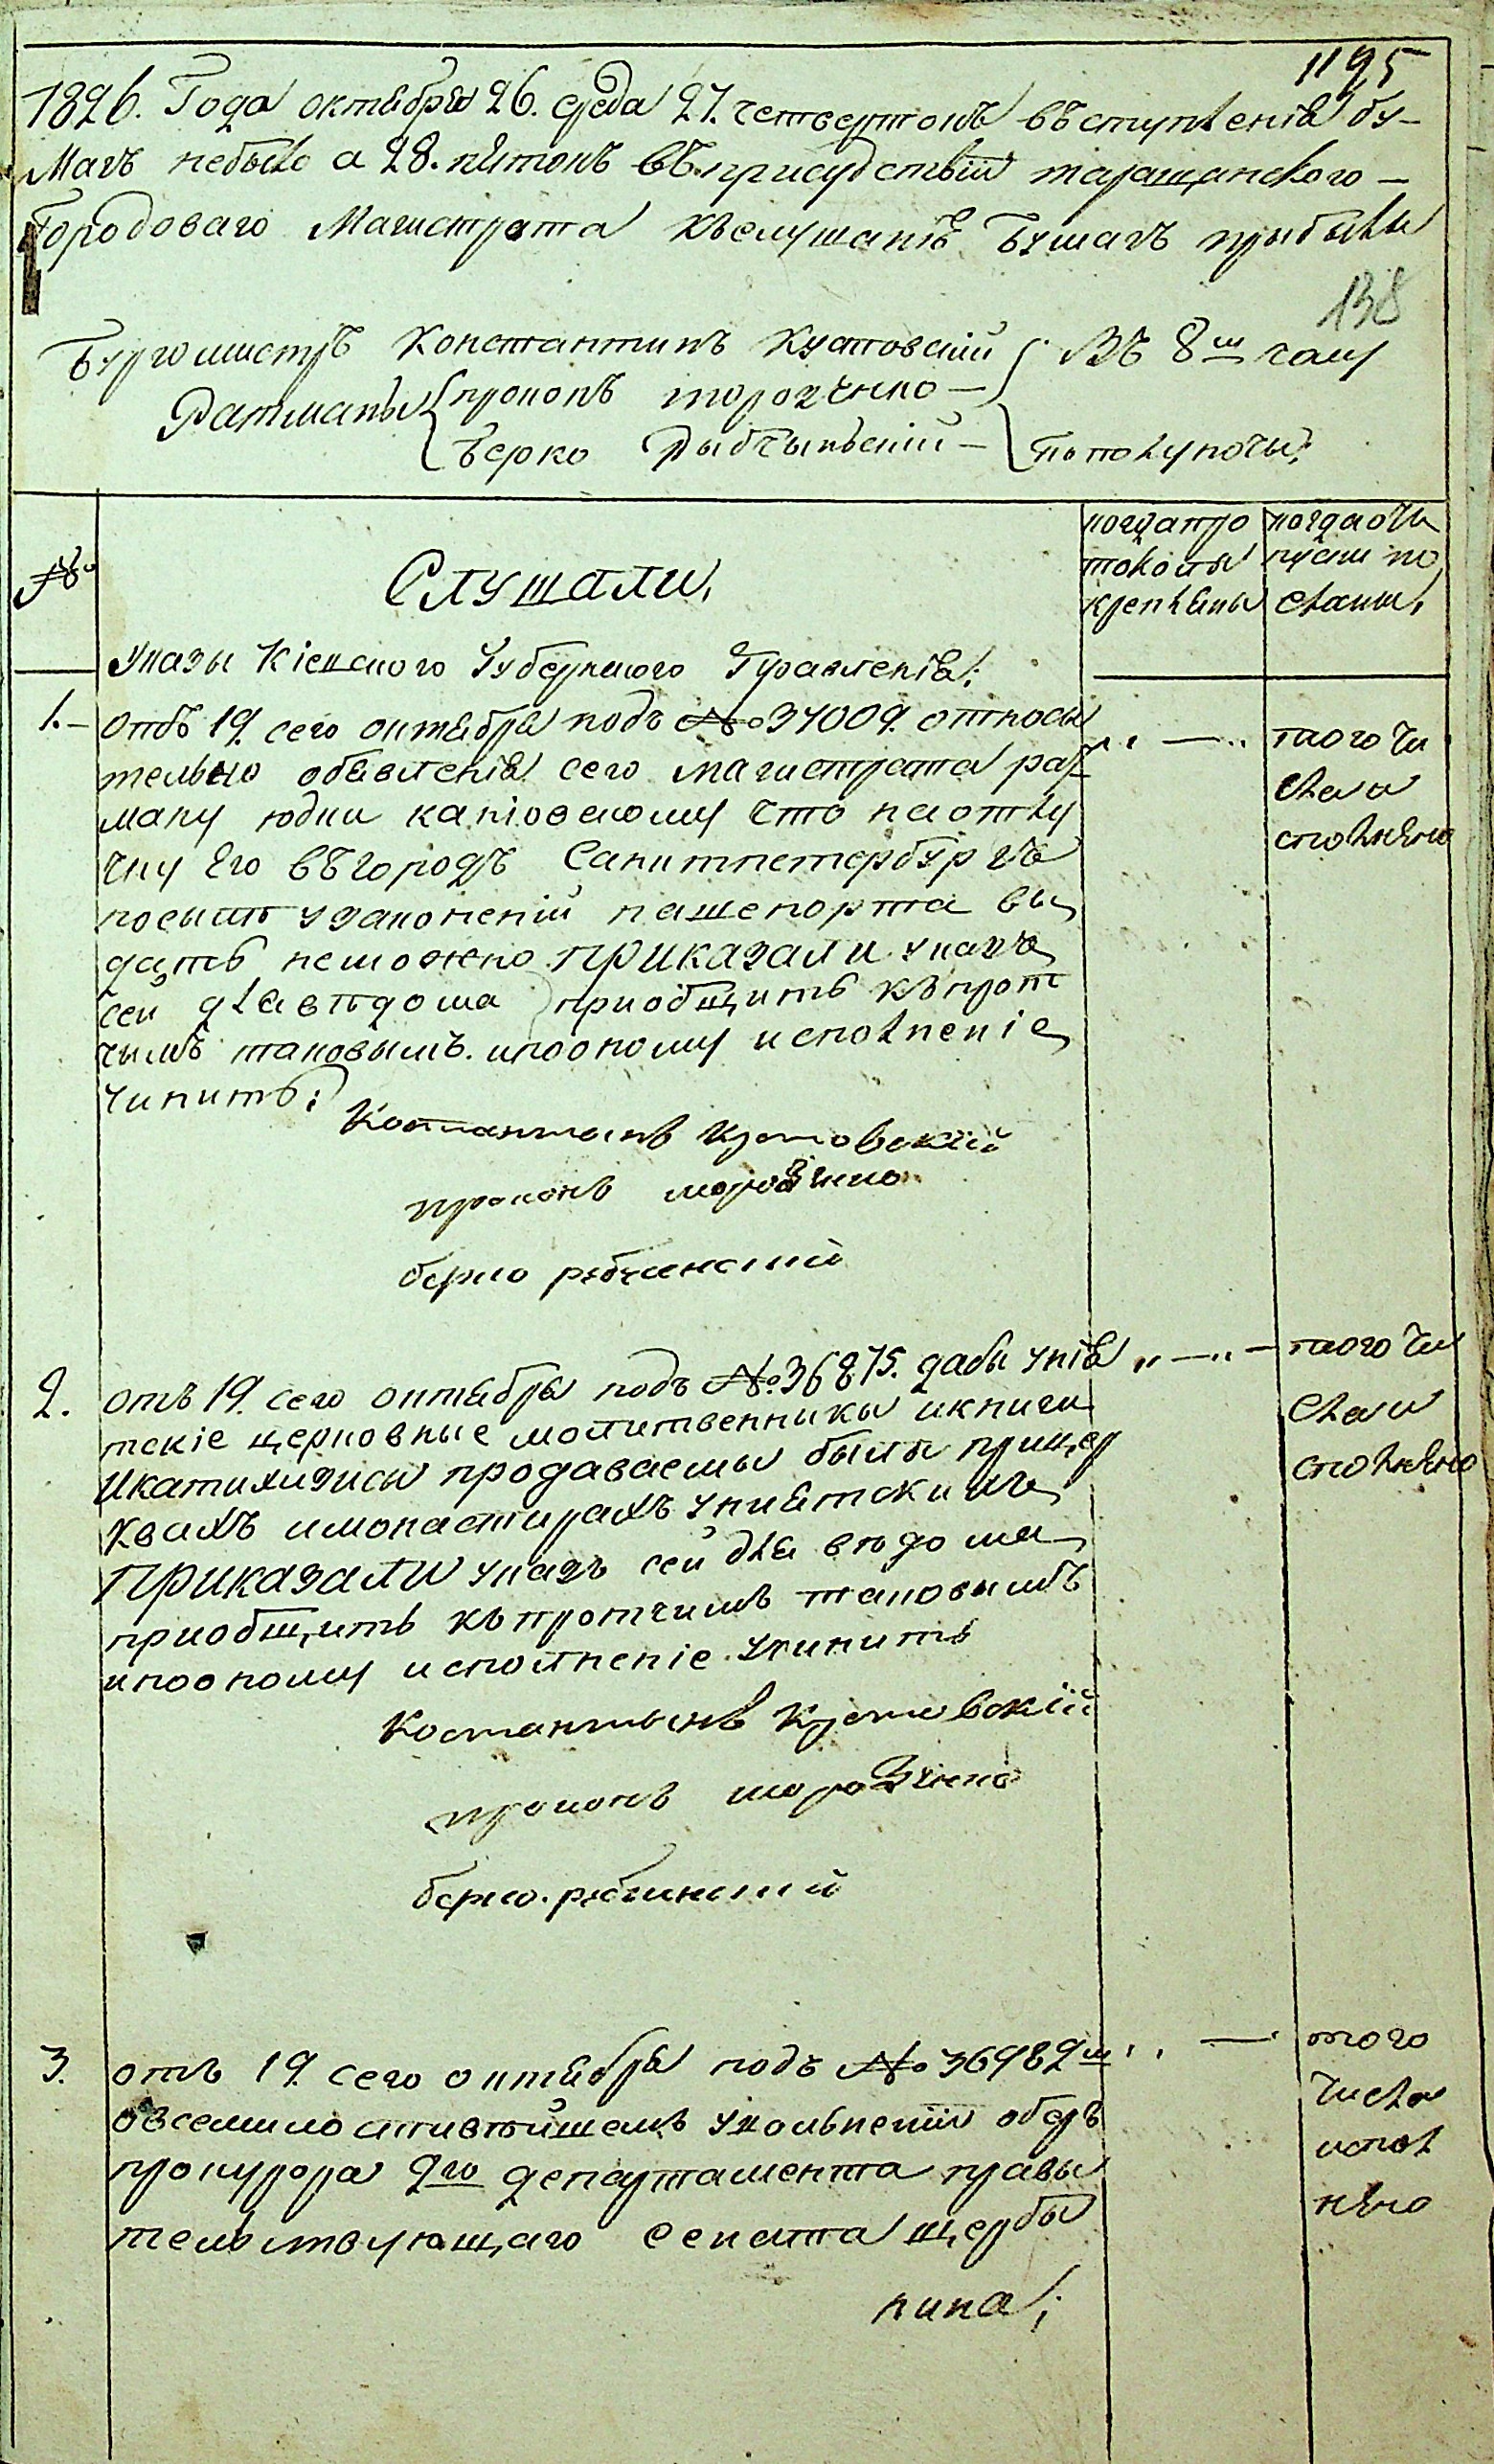 1195
1826. Года октября 26. среда 27. четвертокъ въступленія бу-
магъ небыло а 28. пятокъ въприсудствіи таращанского
Городоваго Магистрата къслушанію Бумагъ прибыли
138
Бургомистръ Константинъ Кустовскій
Ратманы прокопъ торозчино
Берко Рыбчынскій
Въ 8м часу
пополуночы:
№
Слушали,
когда про
токолы
крепляны
когда отъ
пуски по
сланы,
Указы Кіевского Губернского Правленія:
1.
отъ 19. сего октября подъ № 37009. относы
тельно обявленія сего магистрата рат
ману юдки каніовскому что наотлу
чку Его въгородъ Санктпетербургъ
посылѣ узаконеній пашепорта вы
дать неможно ПРИКАЗАЛИ указъ
сей для вѣдома приобщить къпрот
чимъ таковымъ. ипооному исполненіе
чинить:
того чи
сла и
сполняно
Костантинъ Кустовскій
прокопъ торозчино
берко рябчинский
2.
отъ 19. сего октября подъ № 36875. дабы унія
тскіе церковные молитвенники икниги
Икатихизисы продаваемы были прицер
квахъ имонастирахъ уніятскихъ
ПРИКАЗАЛИ указъ сей для вѣдома
приобщить къпротчимъ таковымъ
ипооному исполненіе учинить
того чи
сла и
сполняно
Костантынъ Кустовскій
прокопъ торозчино
берко. рябчинский
3.
отъ 19. сего октября подъ № 36982м
овсемилостивѣйшемъ увольненіи оберъ
прокурора 2го департамента правы
тельствующаго сената щербы
нина;
того
числа
испол
няно